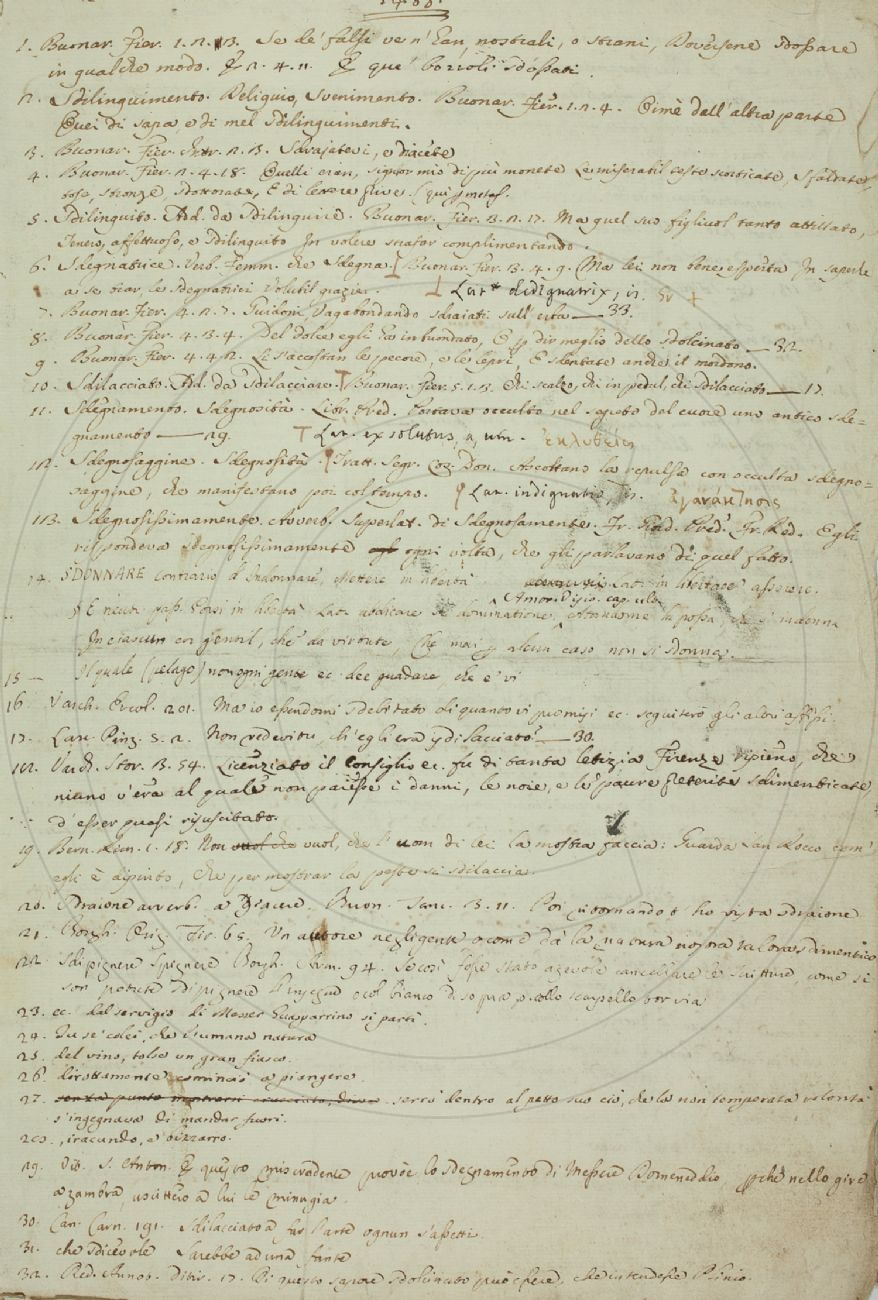 1. Buonar. Fier. 1. 2. 13. Se de' falsi ve n'han, nostrali, o strani, Doversene sdossare
in qualche modo. E 2. 4. 11. E que' borioli sdossati.
2. Sdilinquimento. Deliquio, Svenimento. Buonar. Fier. 1. 2. 4. Oimè dall'altra parte
Quei di sapa, e di mel sdilinquimenti.
3. Buonar. Fier. Intr. 2. 13. Sdrajatevi, e diacete
4. Buonar. Fier. 2. 4. 18. Quelli eran, signor mio di più monete Le miserabil ceste scorticate, Sfaldate,
tose, stronze, sdottorate, E di levere
5. Sdilinquito. Add. da Sdilinquire. Buonar. Fier. 3. 2. 17. Ma quel suo figliuol tanto attillato,
Tenero, affettuoso, e sdilinquito In volere strafar complimentando.
6. Sdegnatrice. Verb. Femm. che sdegna. Buonar. Fier. 3. 4. 9. Ma lei non bene esperta In saperle
a se tirar, le sdegnatrici Volubil grazie. Lat. dedignatrix, is.
7. Buonar. Fier. 4. 2. 7. Guidoni, Vagabondando sdraiati sull' erba — 33.
8. Buonar. Fier. 4. 3. 4. Del dolce egli ha inbondato, E p dir meglio dello sdolcinato — 32.
9. Buonar. Fier. 4. 4. 12. Li s'accostan le pecore, e le lepri, E sdentate anche il mordono.
10. Sdilacciato. Add. da Sdilacciare. Buonar. Fier. 5. 1. 3. Chi scalzo, chi in pedul, chi sdilacciato — 17.
11. Sdegnamento. Sdegnosità. Libr. Pred. Portava occulto nel segreto del cuore uno antico sde=
gnamento — 29. Lat. exsolutus, a, um. ἐκλυθείς
12. Sdegnosaggine. Sdegnosità. Tratt. Segr. Cos. Don. Ascoltano la repulsa con occulta sdegno=
saggine, che manifestano poi col tempo. Lat. indignatio, is. ἀγανάκτησις
13. Sdegnosissimamente. Avverb. Superlat. di Sdegnosamente. Fr. Giord. Pred. Fr. Red. Egli
rispondeva sdegnosissimamente ogni volta, che gli parlavano di quel fatto.
14. SDONNARE contrario d'Indonnare, Mettere in libertà
E neutr. pass. Porsi in libertà Lat. Amor. Vis. cap.
In ciascun cor gentil, che ha virtute, Che mai p alcun caso non si sdonna.
15 — Il quale (pelago) non ogni gente ec. dee guadare, che e' vi
16 Varch. Ercol. 201. Ma io essendomi sdebitato di quanto vi promisi ec. seguiterò gli altri
17. Lasc. Pinz. 3. 2. Non vedevitu, ch'egli era sdilacciato? — 30.
18. Varch. Stor. 13. 54. Licenziato il Consiglio ec. fu di tanta letizia Firenze ripieno, che
niuno v'era al quale non paresse i danni, le noie, e le paure preterite sdimenticate,
d'esser quasi risuscitato.
19. Bern. Rim. 1. 18. Non vuol che vuol, che l'uom di lei la mostra faccia: Guarda San Rocco com'
egli è dipinto, Che per mostrar la peste si sdilaccia.
20. Sdraione avverb. a Giacere. Buon. Tanc. 3. 11. Poi ritornando t' ho vista sdraione
21. Borgh. Orig. Fir. 65. Un autore negligente o come dà la natura nostra talora sdimentico
22. Sdipignere Spignere Borgh. Arm. 94. Se così fosse stato agevole cancellare le scritture come si
son potute sdipignere
23. ec. dal servigio di Messer Guasparrino si partì.
24. Tu se' colei, che l'umana natura
25. del vino, tolse un gran fiasco.
26. dirottamente cominciò a piangere.
27. senza punto mostrarsi crucciato, serrò dentro al petto suo ciò, che la non temperata volontà
s'ingegnava di mandar fuori.
28. , iracundo, e bizzarro.
29. Vit. S. Anton. E questo miscredente provòe lo sdegnamento di Messere Domeneddio, pchè nello gire
a zambra, uscittero a lui le minugia.
30. Can. Carn. 191. Sdilacciato a far l'arte ognun s'assetti.
31. che sdicevole sarebbe ad una fante
32. Red. Annot. Ditir. 17. Di questo sapore sdolcinato può essere, che intendesse Plinio.